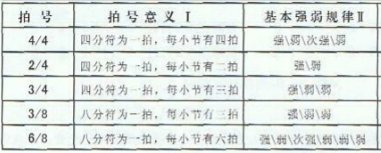 拍号 拍号意义Ⅰ 基本强弱规律Ⅱ
4/4 四分符为一拍，每小节有四拍 强\弱\次强\弱
2/4 四分符为一拍，每小节有二拍 强\弱
3/4 四分符为一拍，每小节有三拍 强\弱\弱
3/8 八分符为一拍，每小节有三拍 强\弱\弱
6/8 八分符为一拍，每小节有六拍 强\弱\次强\弱\弱\弱